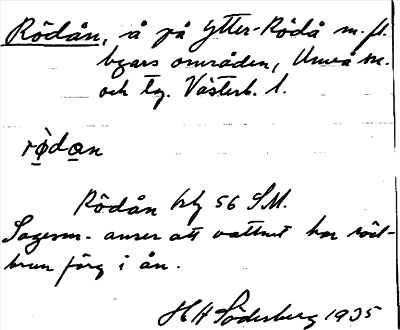 Rödån, å på Ytter-Rödå m. fl.
byars områden, Umeå sn.
och tg. Västerb. l.
rödan
Rödån krtbl 56 S.M.
Sagesm. anser att vattnet har röd-
brun färg i ån.
H H Söderberg 1935